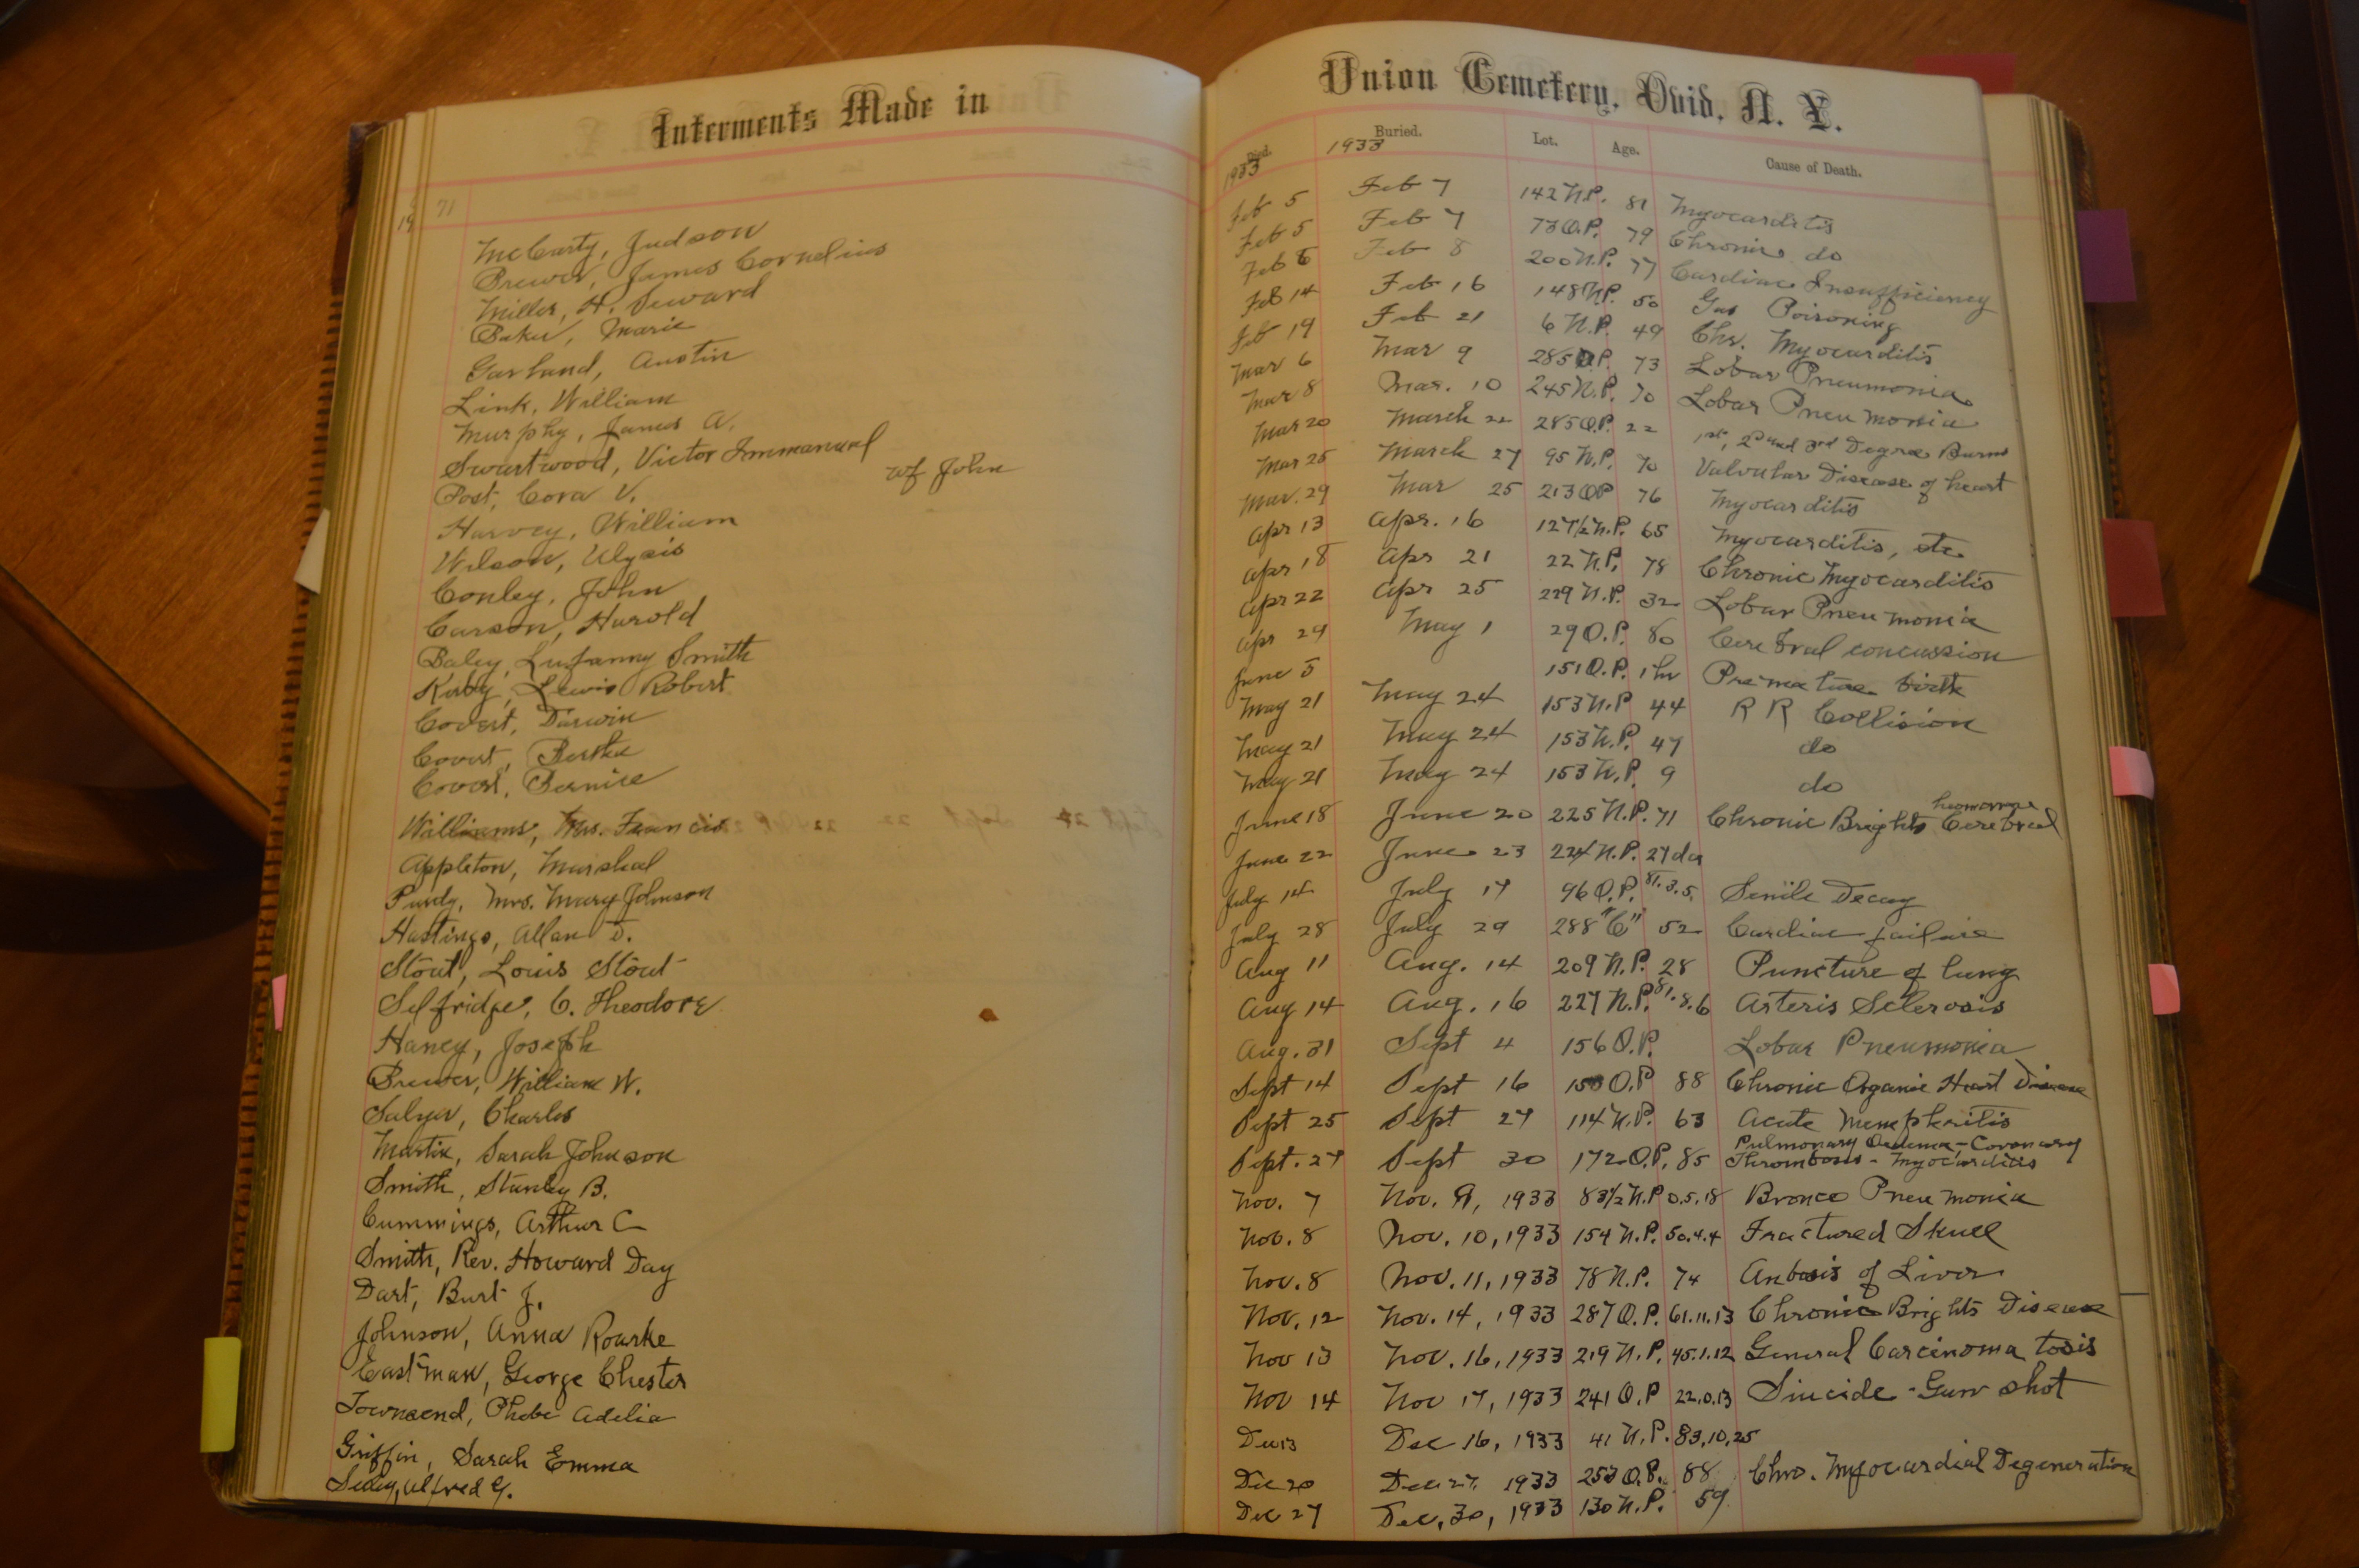 Interments Made in
71
19
McCarty, Judson
Brewer, James Cornelius
Miller, H. Seward
Baker, Marie
Garland, Austin
Link, William
Murphy, James A.
Swartwood, Victor Immanuel
Post, Cora V. wf John
Harvey, William
Wilson, Ulysis
Conley, John
Carson, Harold
Baley, Lufanny Smith
Kirby, Lewis Robert
Covert, Darwin
Covert, Bertha
Covert, Bernice
Williams, Mrs. Francis
Appleton, Marshal
Purdy, Mrs. Mary Johnson
Hastings, Allan D.
Stout, Louis Stout
Selfridge, C. Theodore
Haney, Joseph
Brewer, William W.
Salyer, Charles
Martin, Sarah Johnson
Smith, Stanley B.
Cummings, Arthur C
Smith, Rev. Howard Day
Dart, Burt J.
Johnson, Anna Rourke
Eastman, George Chester
Townsend, Phebe Adelia
Griffin, Sarah Emma
Seeley, Alfred G.
Union Cemetery, Ovid, N. Y.
Died. Buried. Lot. Age. Cause of Death.
1933 1933
Feb 5 Feb 7 142 N.P. 81 Myocarditis
Feb 5 Feb 7 73 O.P. 79 Chronic do
Feb 6 Feb 8 200 N.P. 77 Cardiac Insufficiency
Feb 14 Feb 16 148 N.P. 50 Gas Poisoning
Feb 19 Feb 21 6 N.P. 49 Chr. Myocarditis
Mar 6 Mar 9 285 O.P. 73 Lobar Pneumonia
Mar 8 Mar. 10 245 N.P. 70 Lobar Pneumonia
Mar 20 March 22 285 O.P. 22 1st, 2d and 3rd Degree Burns
Mar 25 March 27 95 N.P. 70 Valvular Disease of heart
Mar. 29 Mar 25 213 OP 76 Myocarditis
Apr 13 Apr. 16 127½ N.P. 65 Myocarditis, etc
Apr 18 Apr 21 22 N.P. 78 Chronic Myocarditis
Apr 22 Apr 25 229 N.P. 32 Lobar Pneumonia
Apr 29 May 1 29 O.P. 80 Cerebral concussion
June 5 151 O.P. 1 hr Premature birth
May 21 May 24 153 N.P 44 R R Collision
May 21 May 24 153 N.P. 47 do
May 21 May 24 153 N.P. 9 do
June 18 June 20 225 N.P. 71 Chronic Brights Cerebral
June 22 June 23 224 N.P. 27 da
July 14 July 17 96 O.P. 81.3.5. Senile Decay
July 28 July 29 288 "C" 52 Cardiac failure
Aug 11 Aug. 14 209 N.P. 28 Puncture of lung
Aug 14 Aug. 16 227 N.P. 81.8.6 Arteris Sclerosis
Aug. 31 Sept 4 156 O.P. Lobar Pneumonia
Sept 14 Sept 16 O.P 88 Chronic Organic Heart Disease
Sept 25 Sept 27 114 N.P. 63 Acute Nemphritis
Sept. 27 Sept 30 172 O.P. 85 Pulmonary Oedema - Coronary
Thrombosis - Myocarditis
Nov. 7 Nov. 9, 1933 83½ N.P 0.5.18 Bronco Pneumonia
Nov. 8 Nov. 10, 1933 154 N.P. 50.4.4 Fractured Skull
Nov. 8 Nov. 11, 1933 78 N.P. 74 of Liver
Nov. 12 Nov. 14, 1933 287 O.P. 61.11.13 Chronic Brights Disease
Nov 13 Nov. 16, 1933 219 N.P. 45.1.12 General Carcinoma tosis
Nov 14 Nov 17, 1933 241 O.P 22.0.13 Siucide - Gun shot
Dec 13 Dec 16, 1933 41 N.P. 83,10,25
Dec 20 Dec. 27, 1933 253 O.P. 88 Chro. Myocardial Degeneration
Dec 27 Dec, 30, 1933 130 N.P. 59